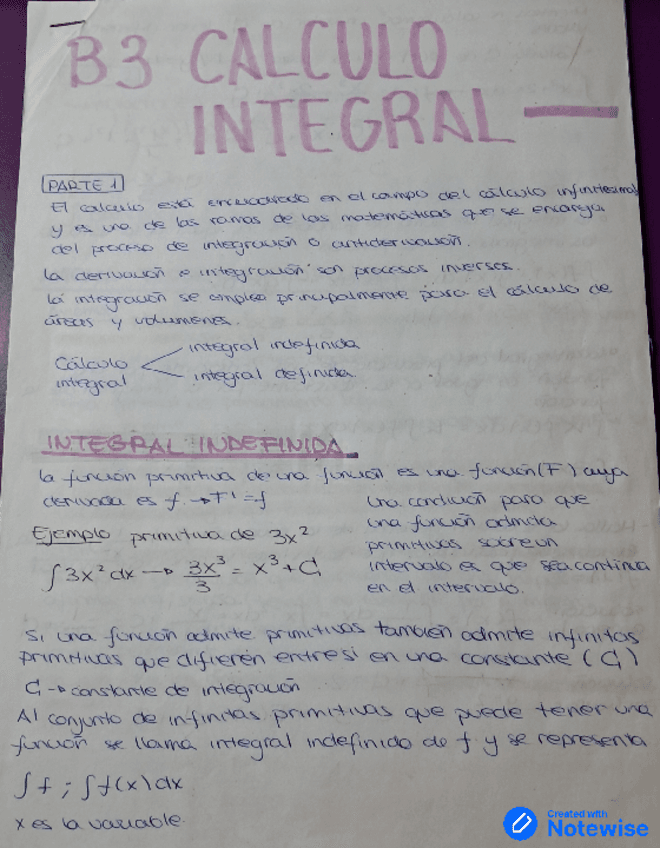 B3 CALCULO
INTEGRAL
PARTE 1
El calculo está encuadrado en el campo del cálculo infinitesimal
y es una de las ramas de las matemáticas que se encarga
del proceso de integración o antiderivación.
La derivación e integración son procesos inversos.
La integración se emplea principalmente para el cálculo de
áreas y volumenes.
Cálculo integral
integral indefinida
integral definida
INTEGRAL INDEFINIDA
La función primitiva de una función es una función (F) cuya
derivada es f. → F' = f
Ejemplo primitiva de 3x²
∫3x² dx → 3x³/3 = x³ + C
Una condición para que
una función admita
primitivas sobre un
intervalo es que sea continua
en el intervalo.
Si una función admite primitivas también admite infinitas
primitivas que difieren entre si en una constante (C)
C → constante de integración
Al conjunto de infinitas primitivas que puede tener una
función se llama integral indefinida de f y se representa
∫f ; ∫f(x) dx
x es la variable.
Created with
Notewise